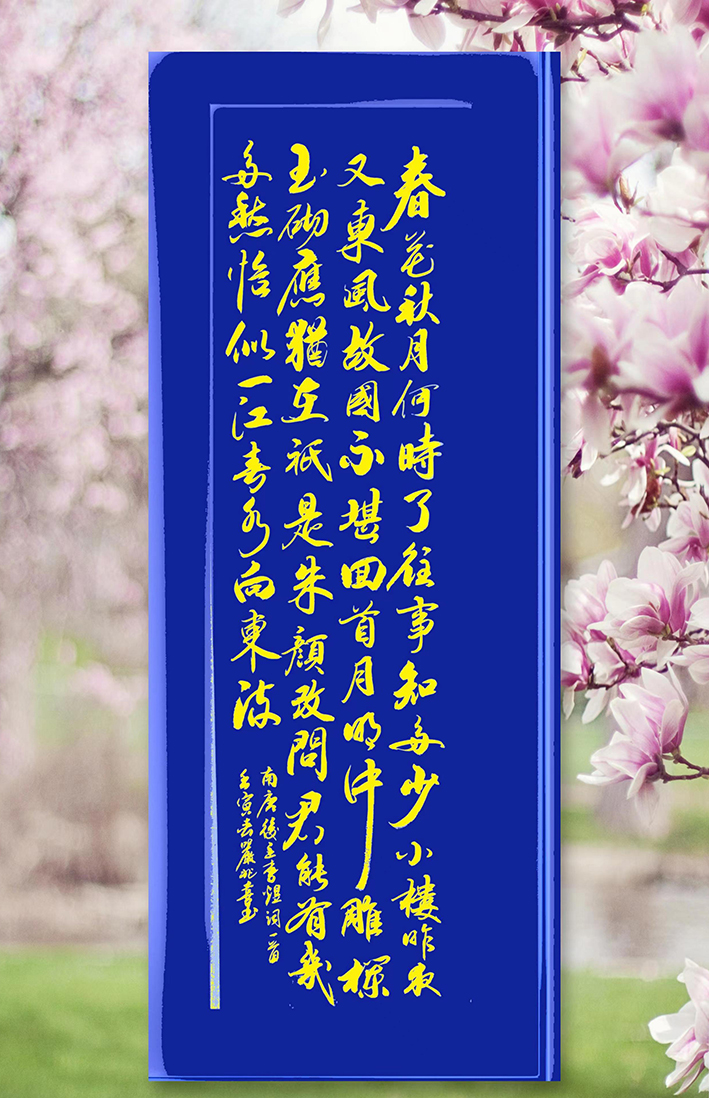 春花秋月何時了往事知多少小樓昨夜
又東風故國不堪回首月明中雕欄
玉砌應猶在祇是朱顏改問君能有幾
多愁恰似一江春水向東流
南唐後主李煜詞一首
壬寅